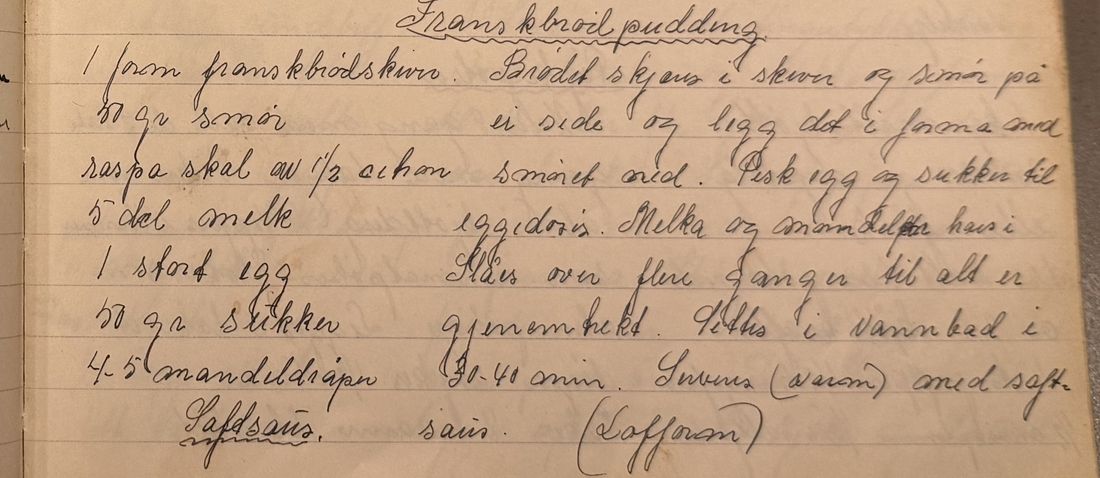 Franskbrødpudding.
1 form franskbrødskiver. Brødet skjærs i skiver og smør på
50 gr smør ei side og legg det i forma med
raspa skal av 1/2 citron smøret ned. Pisk egg og sukker til
5 del melk eggedosis. Melka og mandel haes i
1 stort egg Slåes over flere ganger til alt er
50 gr sukker gjenomtrekt. Settes i vannbad i
4-5 mandeldråper 30-40 min. Serveres (varm) med saft-
Saftsaus. saus. (Lofform)